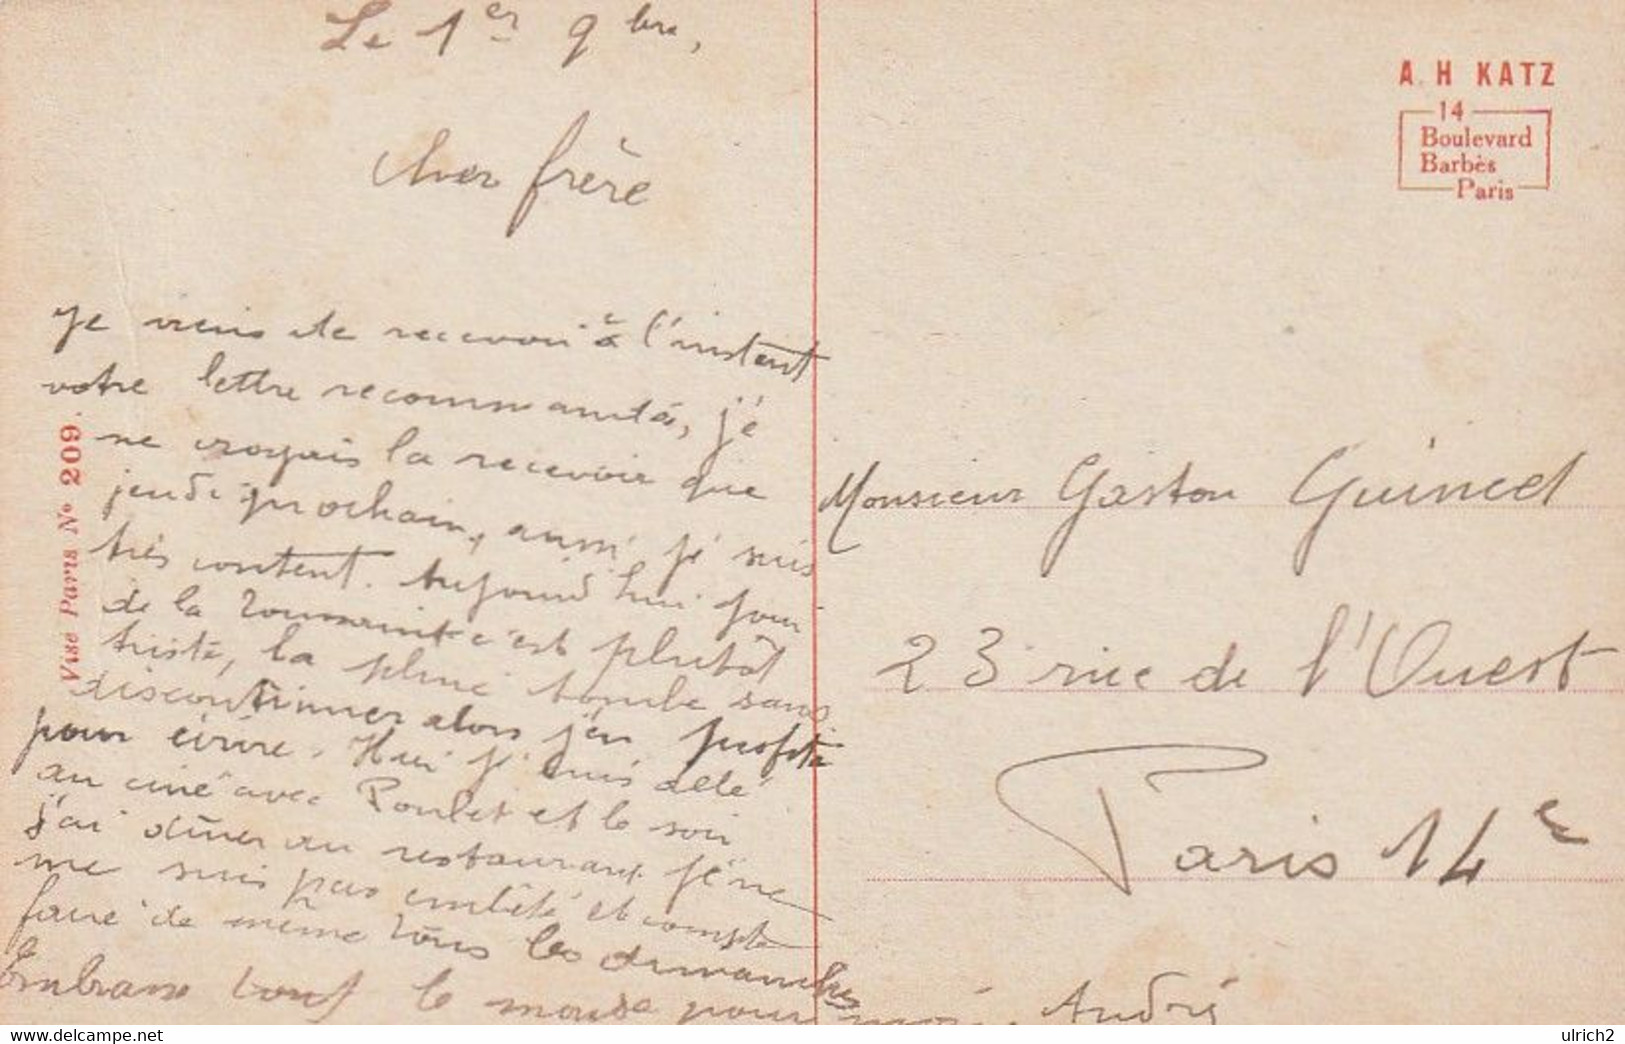 Le 1er 9bre,
Cher frère
je viens de recevoir à l'instant
votre lettre recommandée, je
ne croyais la recevoir que
jeudi prochain, aussi je suis
très content. Aujourd'hui jour
de la Toussaint c'est plutôt
triste, la pluie tombe sans
discontinuer alors j'en profite
pour écrire. Hier je suis allé
au ciné avec Poulet et le soir
j'ai dîner au restaurant je ne
me suis pas embêté et compte
faire de même tous les dimanches
Embrasse tout le monde pour moi. André
Vise Paris No 209.
A. H KATZ
14
Boulevard
Barbès
Paris
Monsieur Gaston
23 rue de l'Ouest
Paris 14e
delcampe.net
ulrich2